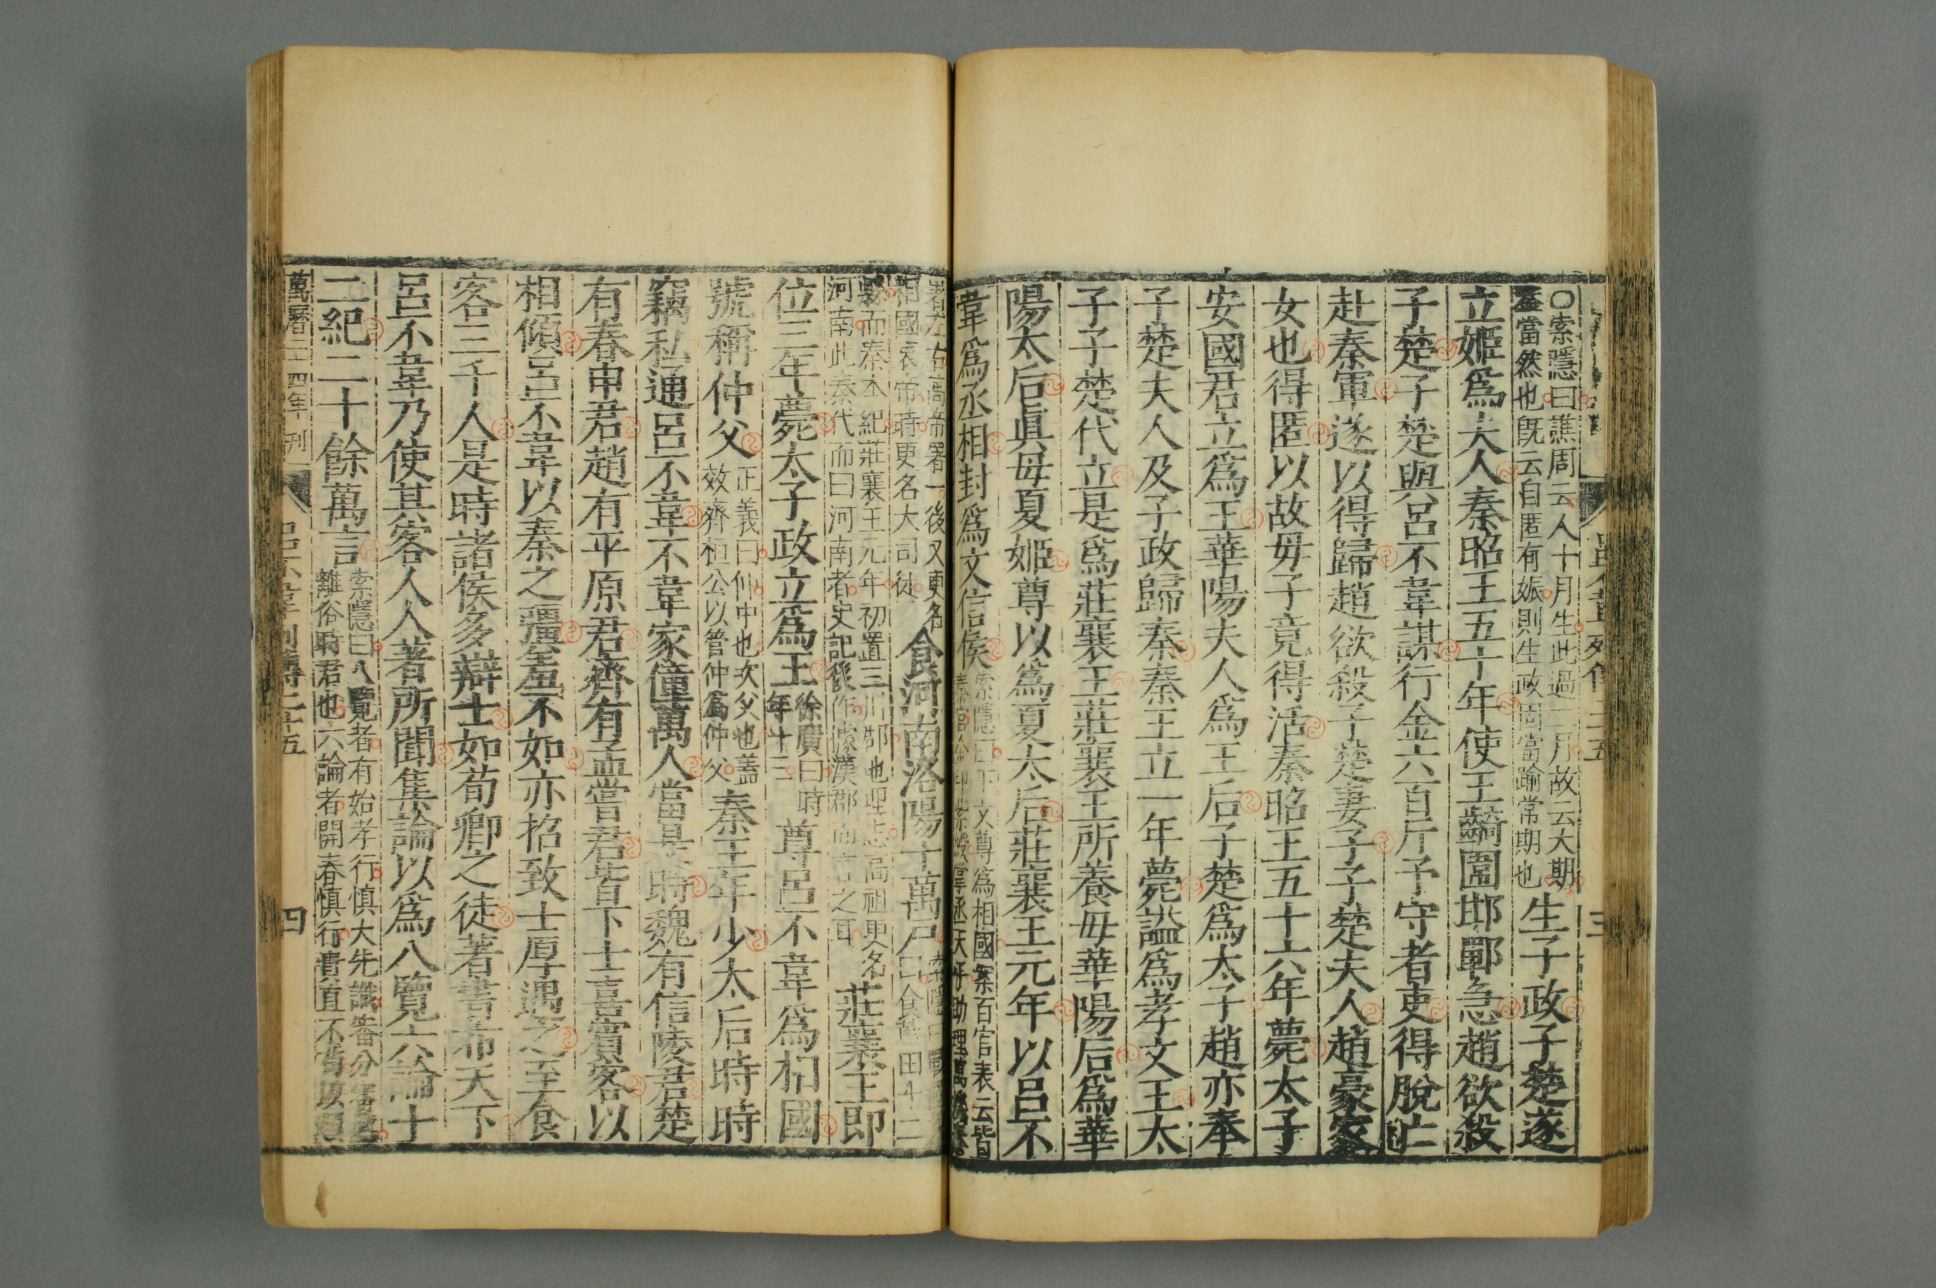 ○索隱曰譙周云人十月生此過二月故云大期
蓋當然也旣云自匿有娠則生政固當踰常期也
生子政子楚遂
立姬爲夫人秦昭王五十年使王齮圍邯鄲急趙欲殺
子楚子楚與呂不韋謀行金六百斤予守者吏得脫亡
赴秦軍遂以得歸趙欲殺子楚妻子子楚夫人趙豪家
女也得匿以故母子竟得活秦昭王五十六年薨太子
安國君立爲王華陽夫人爲王后子楚爲太子趙亦奉
子楚夫人及子政歸秦秦王立一年薨謚爲孝文王太
子子楚代立是爲莊襄王莊襄王所養母華陽后爲華
陽太后眞母夏姬尊以爲夏太后莊襄王元年以呂不
韋爲丞相封爲文信侯
索隱曰下文尊爲相國案百官表云皆
秦官金印紫綬掌丞天子助理萬機秦
置左右高帝置一後又更名
相國哀帝時更名大司徒
食河南洛陽十萬戶
縣而秦本紀莊襄王元年初置三川郡也地理志高祖更名
河南此秦代而曰河南者史記後作據漢郡而言之耳
莊襄王即
位三年薨太子政立爲王
徐廣曰時
年十三
尊呂不韋爲相國
號稱仲父
正義曰仲中也次父也蓋
效齊桓公以管仲爲仲父
秦王年少太后時時
竊私通呂不韋不韋家僮萬人當是時魏有信陵君楚
有春申君趙有平原君齊有孟嘗君皆下士喜賓客以
相傾呂不韋以秦之彊羞不如亦招致士厚遇之至食
客三千人是時諸侯多辯士如荀卿之徒著書布天下
呂不韋乃使其客人人著所聞集論以爲八覽六論十
二紀二十餘萬言
索隱曰八覽者有始孝行愼大先識審分審應
離俗時君也六論者開春愼行貴直不苟以順
萬曆二十四年刊
呂不韋列傳二十五
四